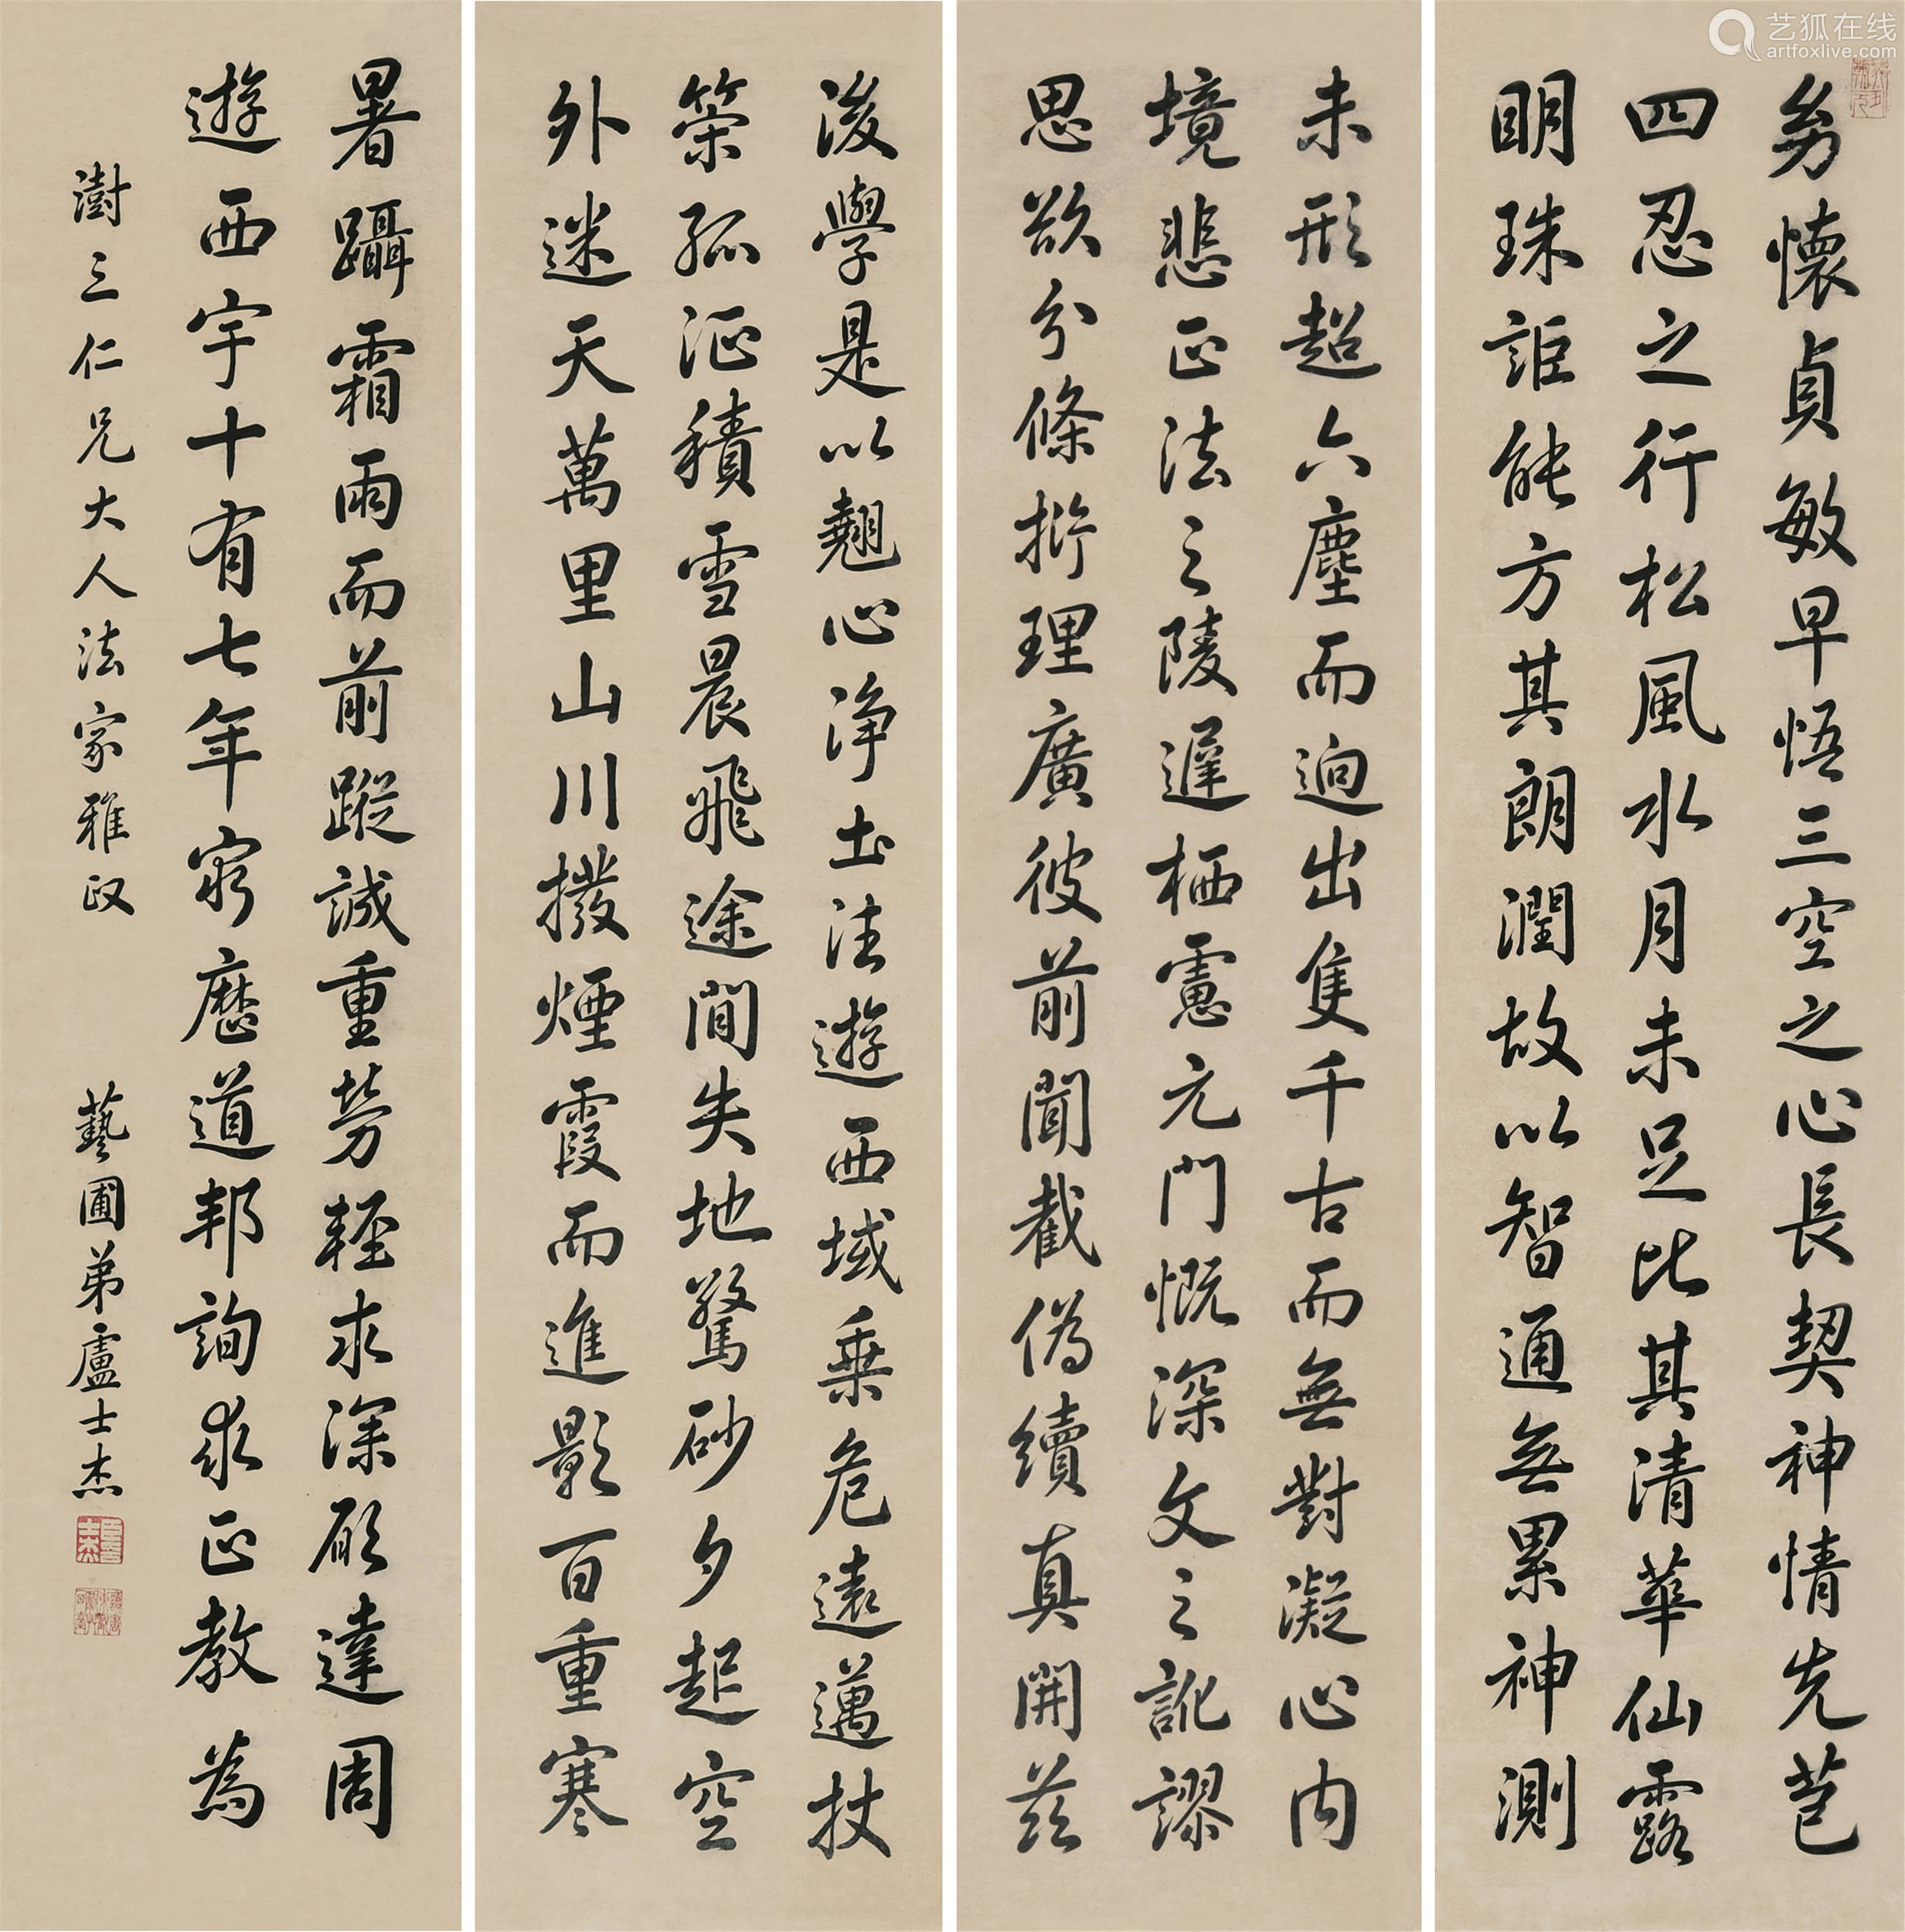 艺狐在线
artfoxlive.com
㓜懷貞敏早悟三空之心長契神情先苞
四忍之行松風水月未足比其清華仙露
明珠詎能方其朗潤故以智通無累神測
未形超六塵而逈出隻千古而無對凝心內
境悲正法之陵遲栖慮元門慨深文之訛謬
思欲分條析理廣彼前聞截偽續真開茲
後學是以翹心淨土法遊西域乗危遠邁杖
策孤征積雪晨飛途間失地驚砂夕起空
外迷天萬里山川撥煙霞而進影百重寒
暑躡霜雨而前蹤誠重勞輕求深願達周
遊西宇十有七年窮歷道邦詢求正教為
澍三仁兄大人法家雅政
藝圃弟盧士杰